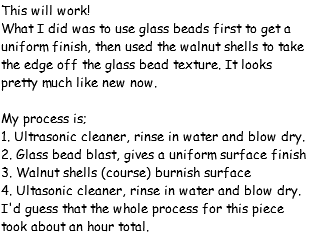 This will work!
What I did was to use glass beads first to get a
uniform finish, then used the walnut shells to take
the edge off the glass bead texture. It looks
pretty much like new now.

My process is;
1. Ultrasonic cleaner, rinse in water and blow dry.
2. Glass bead blast, gives a uniform surface finish
3. Walnut shells (course) burnish surface
4. Ultasonic cleaner, rinse in water and blow dry.
I'd guess that the whole process for this piece
took about an hour total.